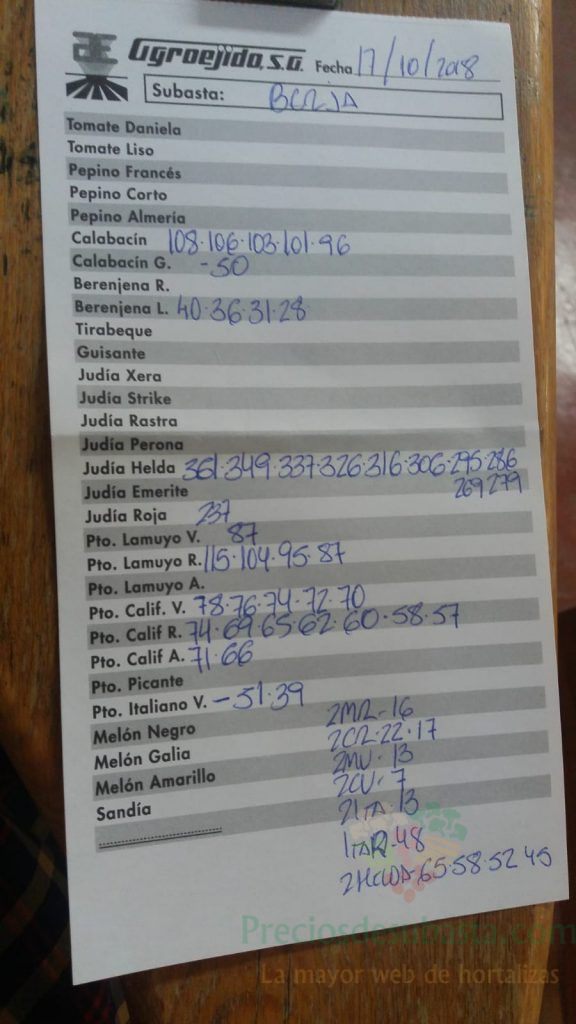 Agroejido, S.A. Fecha 17/10/2018
Subasta: BERJA
Tomate Daniela
Tomate Liso
Pepino Francés
Pepino Corto
Pepino Almería
Calabacín 108.106.103.101.96
Calabacín G. -50
Berenjena R.
Berenjena L. 40.36.31.28
Tirabeque
Guisante
Judía Xera
Judía Strike
Judía Rastra
Judía Perona
Judía Helda 361.349.337.326.316.306.295.286
269 279
Judía Emerite
Judía Roja 237
Pto. Lamuyo V. 87
Pto. Lamuyo R. 115.104.95.87
Pto. Lamuyo A.
Pto. Calif. V. 78.76.74.72.70
Pto. Calif R. 74.69.65.62.60.58.57
Pto. Calif A. 71.66
Pto. Picante
Pto. Italiano V. -51.39
Melón Negro
Melón Galia
Melón Amarillo
Sandía
2MR-16
2CR-22.17
2MV-13
2CV-7
2ITA-13
ITAR-48
2HELDA-65.58.52 45
Preciosdesubasta.com
La mayor web de hortalizas